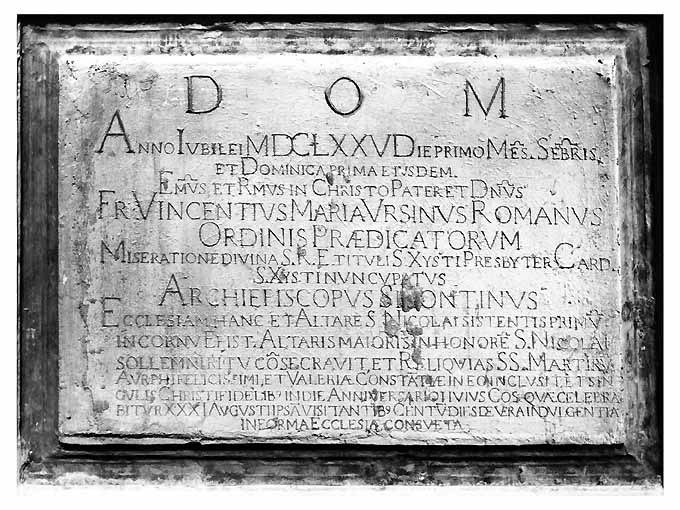 D O M
ANNO IVBILEI MDCLXXV DIE PRIMO MES. SEBRIS.
ET DOMINICA PRIMA EJVSDEM.
EMVS, ET RMVS IN CHRISTO PATER ET DNVS
FR. VINCENTIVS MARIA VRSINVS ROMANVS
ORDINIS PRÆDICATORVM
MISERATIONE DIVINA S. R. E. TITVLI S XYSTI PRESBYTER CARD.
S. XYSTI NVNCVPATVS
ARCHIEPISCOPVS SIPONTINVS
ECCLESIAM HANC ET ALTARE S NICOLAI SISTENTIS PRIMV
IN CORNV EPIST. ALTARIS MAIORIS IN HONORE S. NICOLAI
SOLLEMNI RITV COSECRAVIT, ET RELIQVIAS SS. MARTIRV
AVR PHI FELICISSIMI, ET VALERIÆ CONSTATIÆ IN EO INCLVSIT, ET SIN
GVLIS CHRISTI FIDELIB9 IN DIE ANNIVERSARIO HVIVS COS QVÆ CELEBRA
BITVR XXXI AVGVSTI IPSA VISITANTIB9 CENTV DIES DE VERA INDVLGENTIA
IN FORMA ECCLESIÆ CONSVETA.